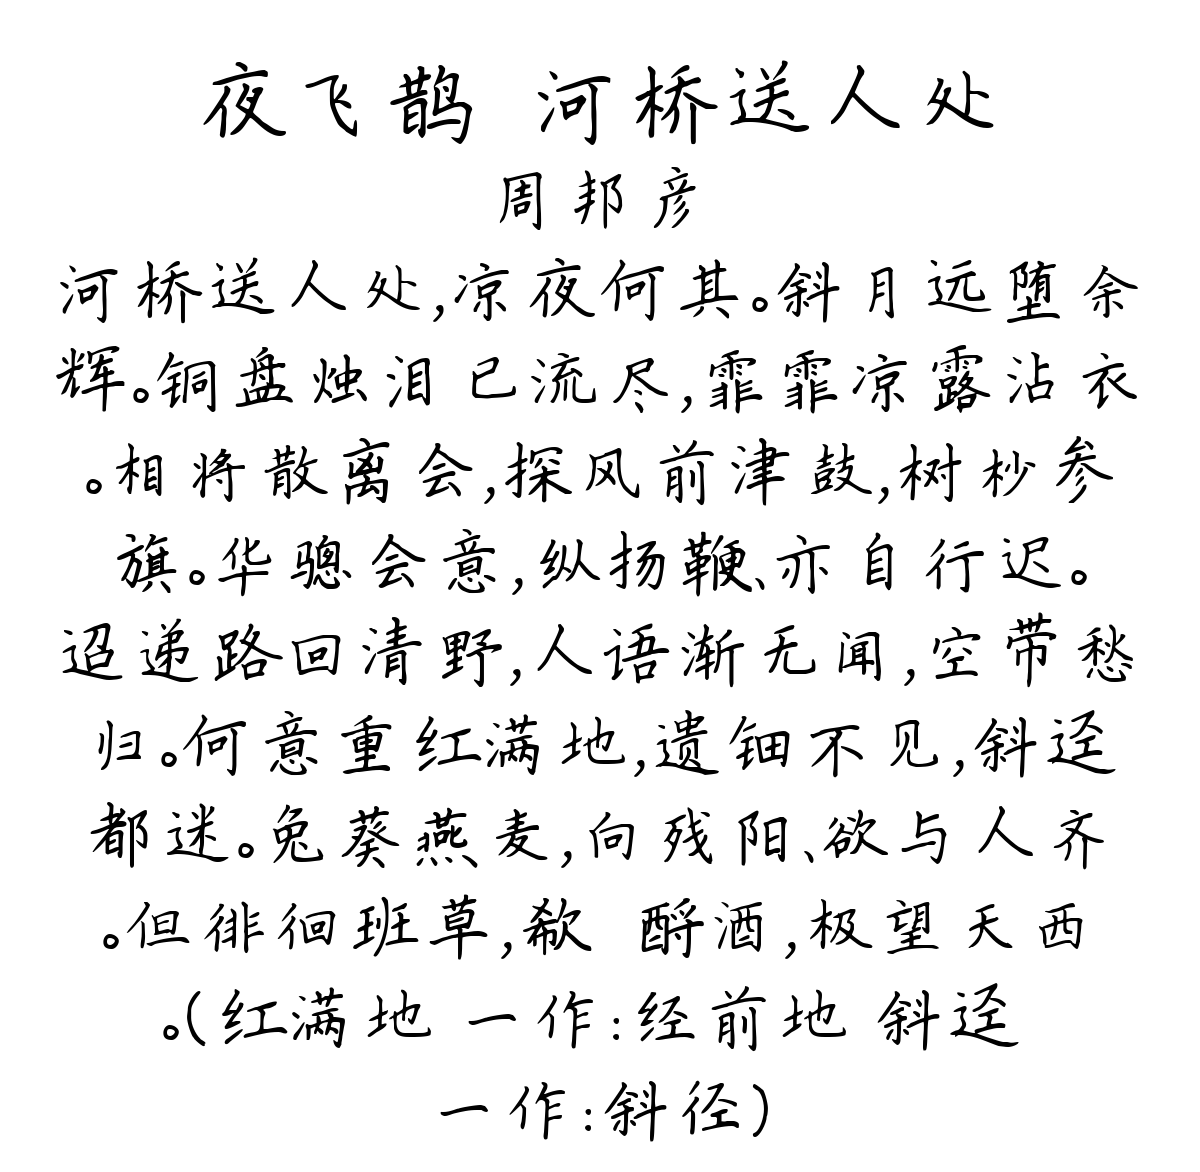 夜飞鹊 河桥送人处
周邦彦
河桥送人处,凉夜何其。斜月远堕余
辉。铜盘烛泪已流尽,霏霏凉露沾衣
。相将散离会,探风前津鼓,树杪参
旗。华骢会意,纵扬鞭、亦自行迟。
迢递路回清野,人语渐无闻,空带愁
归。何意重红满地,遗钿不见,斜迳
都迷。兔葵燕麦,向残阳、欲与人齐
。但徘徊班草,欷 酹酒,极望天西
。(红满地 一作:经前地 斜迳
一作:斜径)